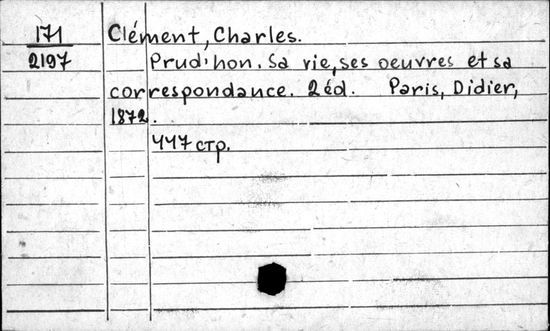 171 Clément, Charles.
2197 Prud'hon. Sa vie, ses oeuvres et sa
correspondance. 2 éd. Paris, Didier,
1872.
447 стр.